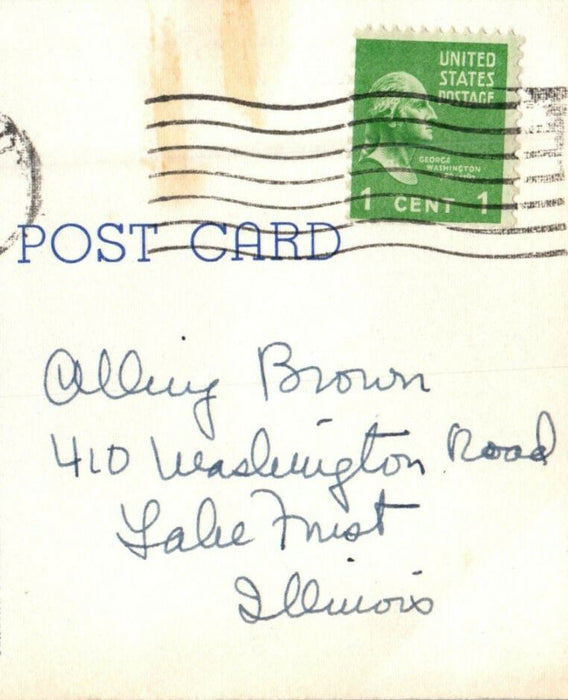 UNITED
STATES
POSTAGE
GEORGE
WASHINGTON
1 CENT 1
POST CARD
Alling Brown
410 Washington Road
Lake Forest
Illinois